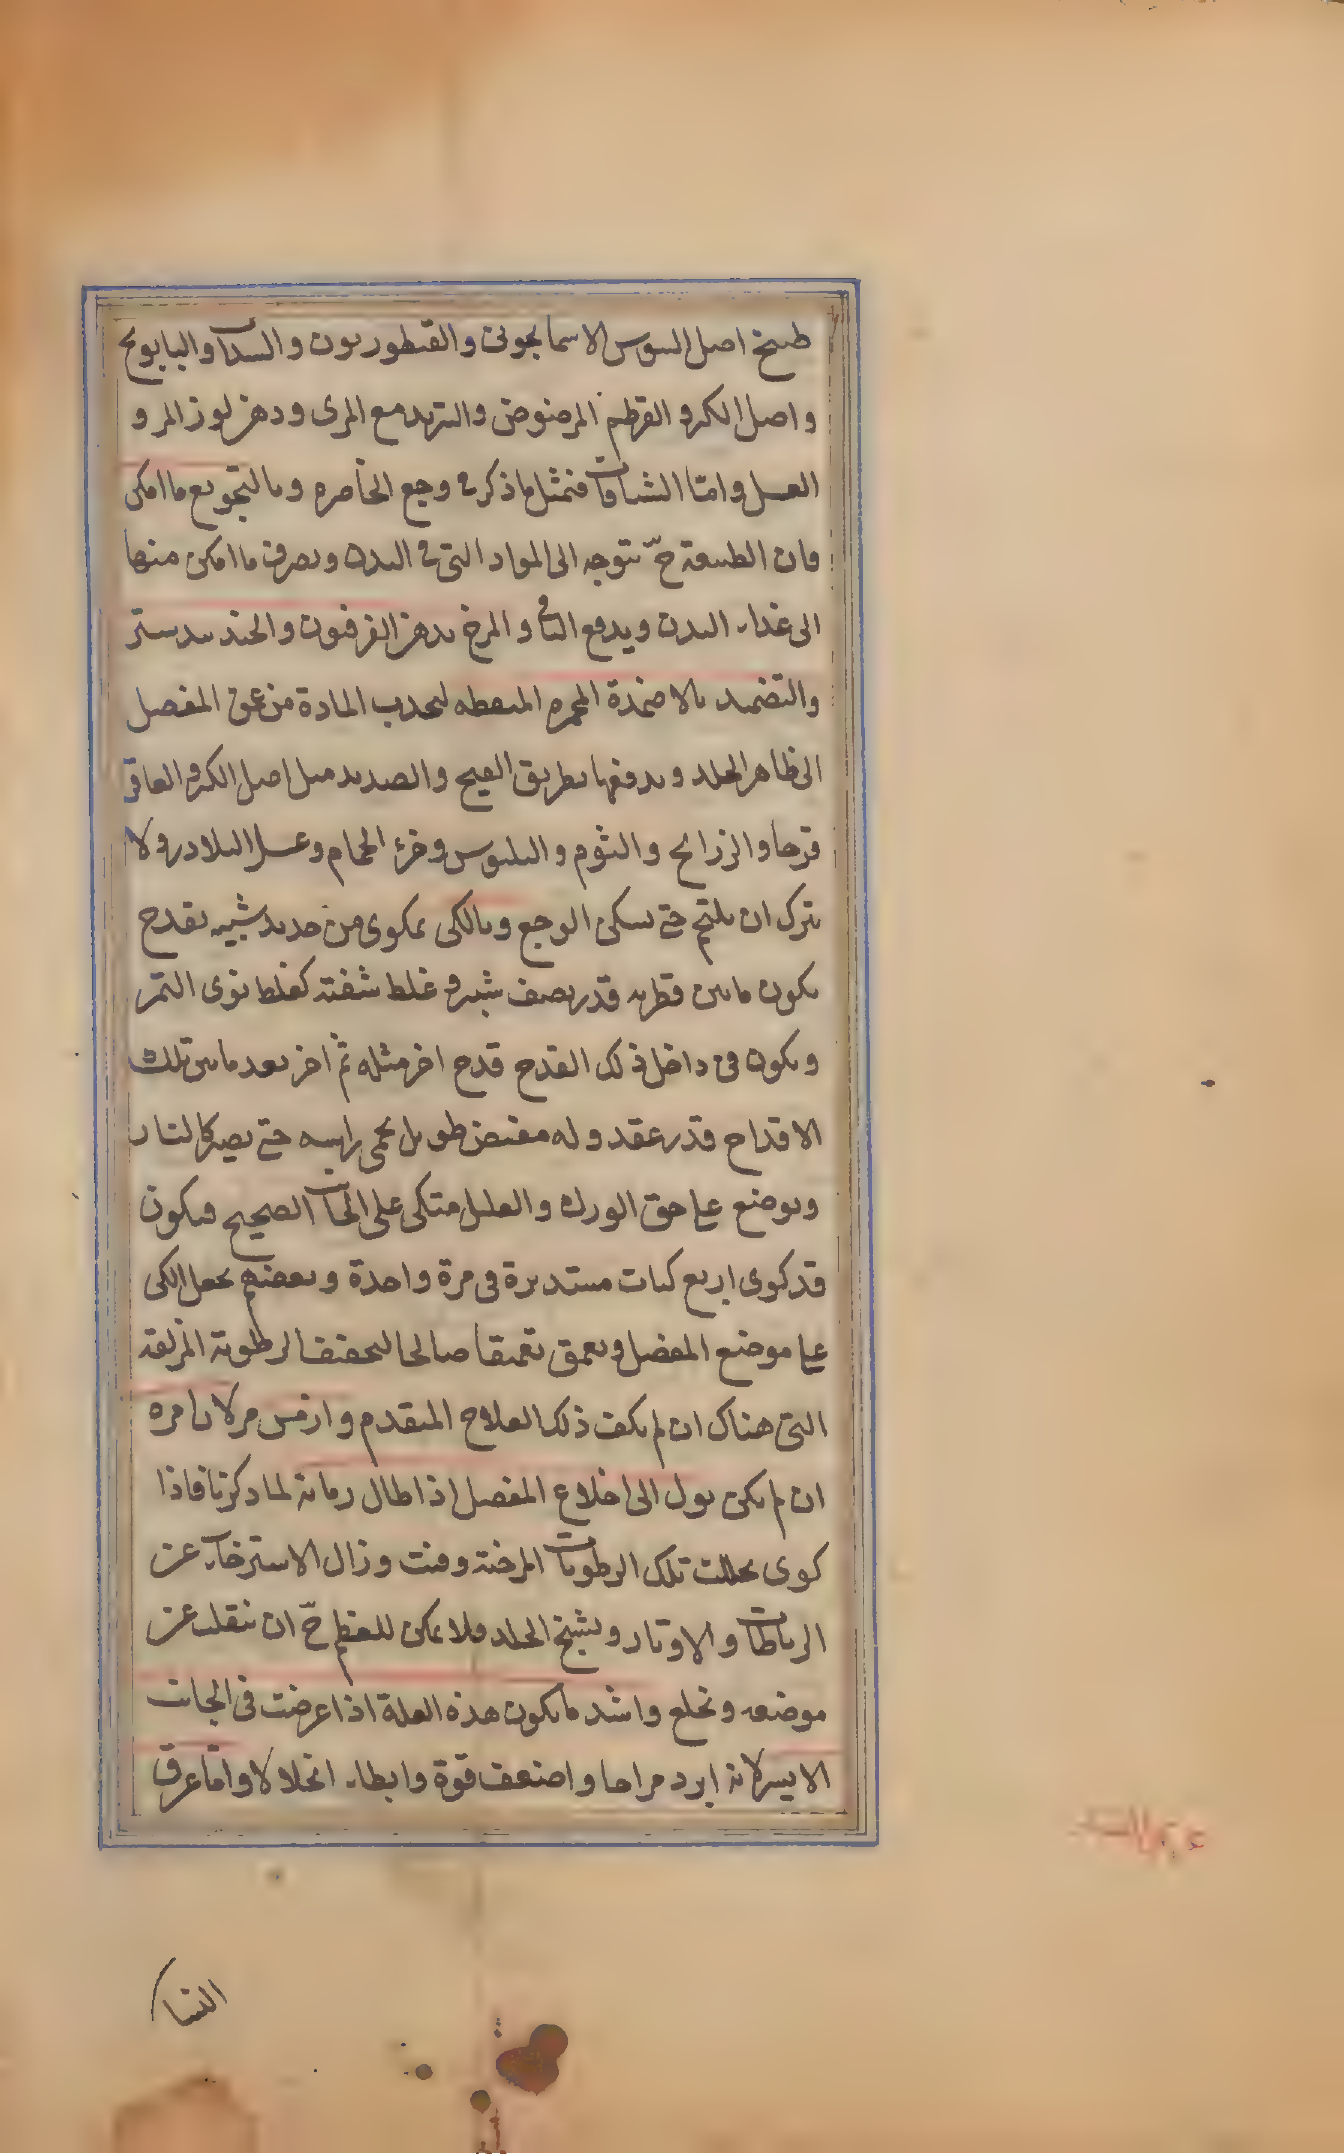 طبيخ اصل السوس الاسمانجونى والقنطوريون والسداب والبابونج
واصل الكبر و القرطم المرضوض والتربد مع المرى ودهن لوز المر و
العسل واما الشيافات فمثل ما ذكر فى وجع الخاصره وبالتجويع ما امكن
فان الطبيعة ح تتوجه الى المواد التى فى البدن وتصرف ما امكن منها
الى غذاء البدن ويدفع الباقى و المرخ بدهن الفرفيون والجندبيدستر
والتضميد بالاضمدة المحمره المنفطه ليجذب المادة من عمق المفصل
الى ظاهر الجلد ويدفعها بطريق القيح والصديد مثل اصل الكبر و العاقر
قرحا والزراريح والثوم والبلبوس وخرء الحمام وعسل البلادر ولا
يترك ان يلتحم حتى يسكن الوجع وبالكى بمكوى من حديد شبيه بقدح
يكون ما بين قطريه قدر نصف شبر و غلظ شفته كغلظ نوى التمر
ويكون فى داخل ذلك القدح قدح اخر مثله ثم اخر بعد ما بين تلك
الاقداح قدر عقد وله مقبض طويل يحمى راسه حتى يصير كالنار
ويوضع على حق الورك والعليل متكى على الجانب الصحيح فيكون
قد كوى اربع كيات مستديرة فى مرة واحدة وبعضهم يجعل الكى
على موضع المفصل ويعمق تعميقا صالحا ليجفف الرطوبة المزلقة
التى هناك ان لم يكف ذلك العلاج المتقدم و لان امره
ان لم يكن يول الى اخلاع المفصل اذا طال زمانه لما ذكرنا فاذا
كوى تحللت تلك الرطوبات المرخية وفنت وزال الاسترخاء عن
الرباطات و الاوتار وتشنج الجلد فلا يمكن للعظم ح ان ينقلب عن
موضعه وتخلع واشد ما يكون هذه العلة اذا عرضت فى الجانب
الايسر لانه ابرد مزاجا واضعف قوة وابطاء انحلالا واما عرق
عرق النسا
النسا